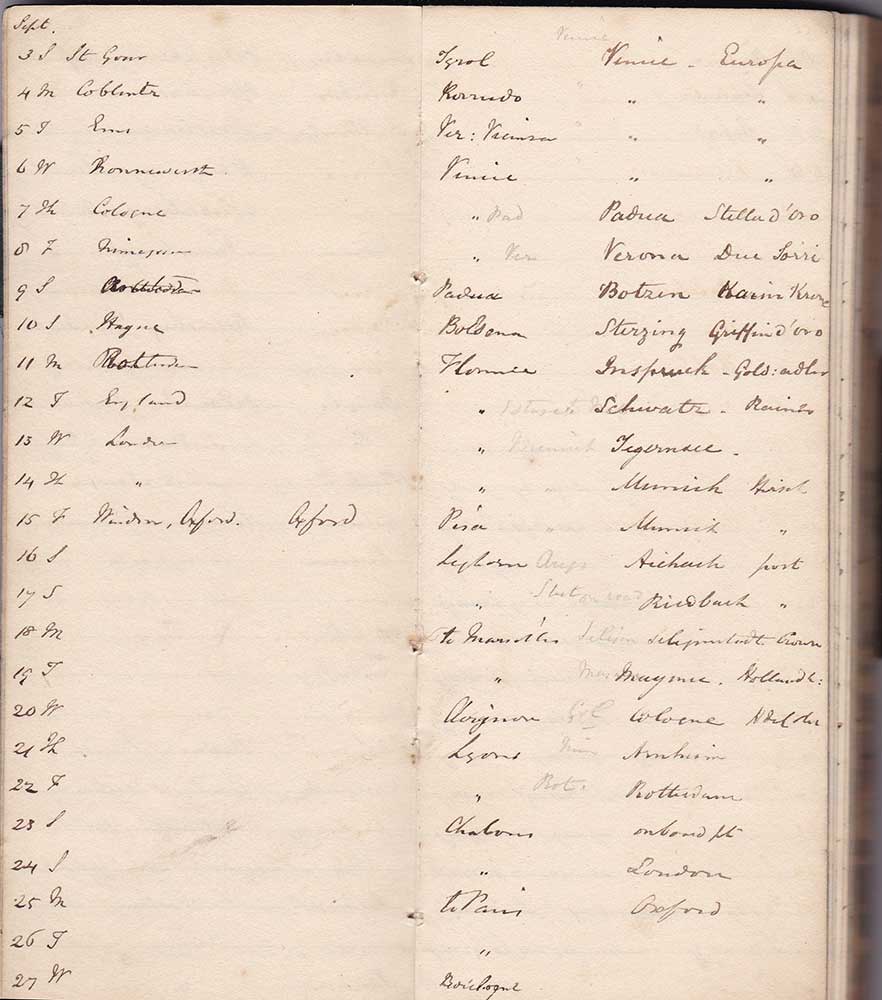 Sept.
Venice
3 S St Goar Tyrol Venice - Europa
4 M Coblentz " "
5 T Ems Ver: Vicensa " "
6 W Venice " "
7 Th Cologne " Pad Padua Stella d'oro
8 F Nimeguen " Ver Verona Due Torri
9 S Padua Botzen Kaiser Krone
10 S Hague Sterzing Griffin d'oro
11 M Rotterdam Inspruck - Gold: adler
12 T England " Schwatz - Rainer
13 W London " Tegernsee -
14 Th " " " Munich Hirsch
15 F Windsor, Oxford. Oxford Pisa " Munich "
16 S Leghorn Aichach post
17 S " on road "
18 M to Marseilles Seligenstadt. Crown
19 T " Mayence. Holland h:
20 W Avignon Col Cologne
21 Th Lyons Nim Arnheim
22 F " Rot. Rotterdam
23 S Chalons onboard pt
24 S " London
25 M to Paris Oxford
26 T "
27 W Boulogne